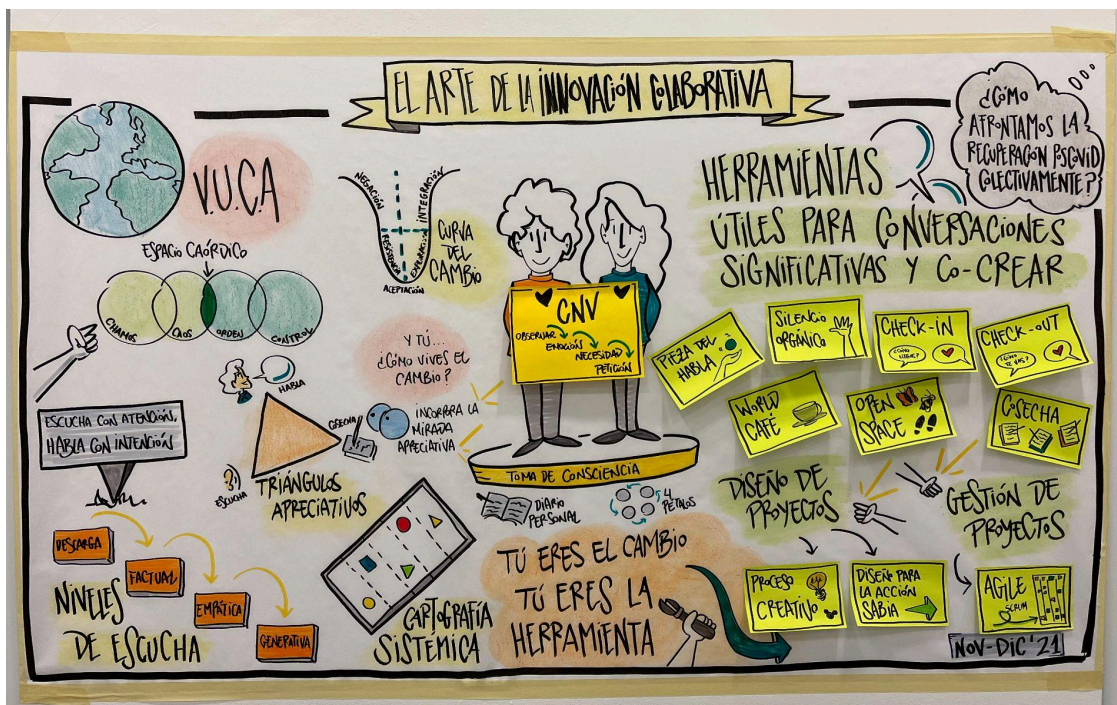 EL ARTE DE LA INNOVACIÓN COLABORATIVA
¿CÓMO
AFRONTAMOS LA
RECUPERACIÓN POSCOVID
COLECTIVAMENTE?
V.U.C.A
ESPACIO CAÓRDICO
CHAMOS
CAOS
ORDEN
CONTROL
NEGACIÓN
RESISTENCIA
ACEPTACIÓN
EXPLORACIÓN
INTEGRACIÓN
CURVA
DEL
CAMBIO
Y TÚ...
¿CÓMO VIVES EL
CAMBIO?
ESCUCHA CON ATENCIÓN,
HABLA CON INTENCIÓN
HABLA
COSECHA
ESCUCHA
TRIÁNGULOS
APRECIATIVOS
INCORPORA LA
MIRADA
APRECIATIVA
DESCARGA
FACTUAL
EMPÁTICA
GENERATIVA
NIVELES
DE ESCUCHA
CARTOGRAFÍA
SISTÉMICA
CNV
OBSERVAR
EMOCIÓN
NECESIDAD
PETICIÓN
TOMA DE CONSCIENCIA
DIARIO
PERSONAL
4
PÉTALOS
TÚ ERES EL CAMBIO
TÚ ERES LA
HERRAMIENTA
HERRAMIENTAS
ÚTILES PARA CONVERSACIONES
SIGNIFICATIVAS Y CO-CREAR
PIEZA DEL
HABLA
SILENCIO
ORGÁNICO
CHECK-IN
¿CÓMO
LLEGAS?
CHECK-OUT
¿CÓMO
TE VAS?
WORLD
CAFÉ
OPEN
SPACE
COSECHA
DISEÑO DE
PROYECTOS
GESTIÓN DE
PROYECTOS
PROCESO
CREATIVO
DISEÑO PARA
LA ACCIÓN
SABIA
AGILE
SCRUM
NOV-DIC '21